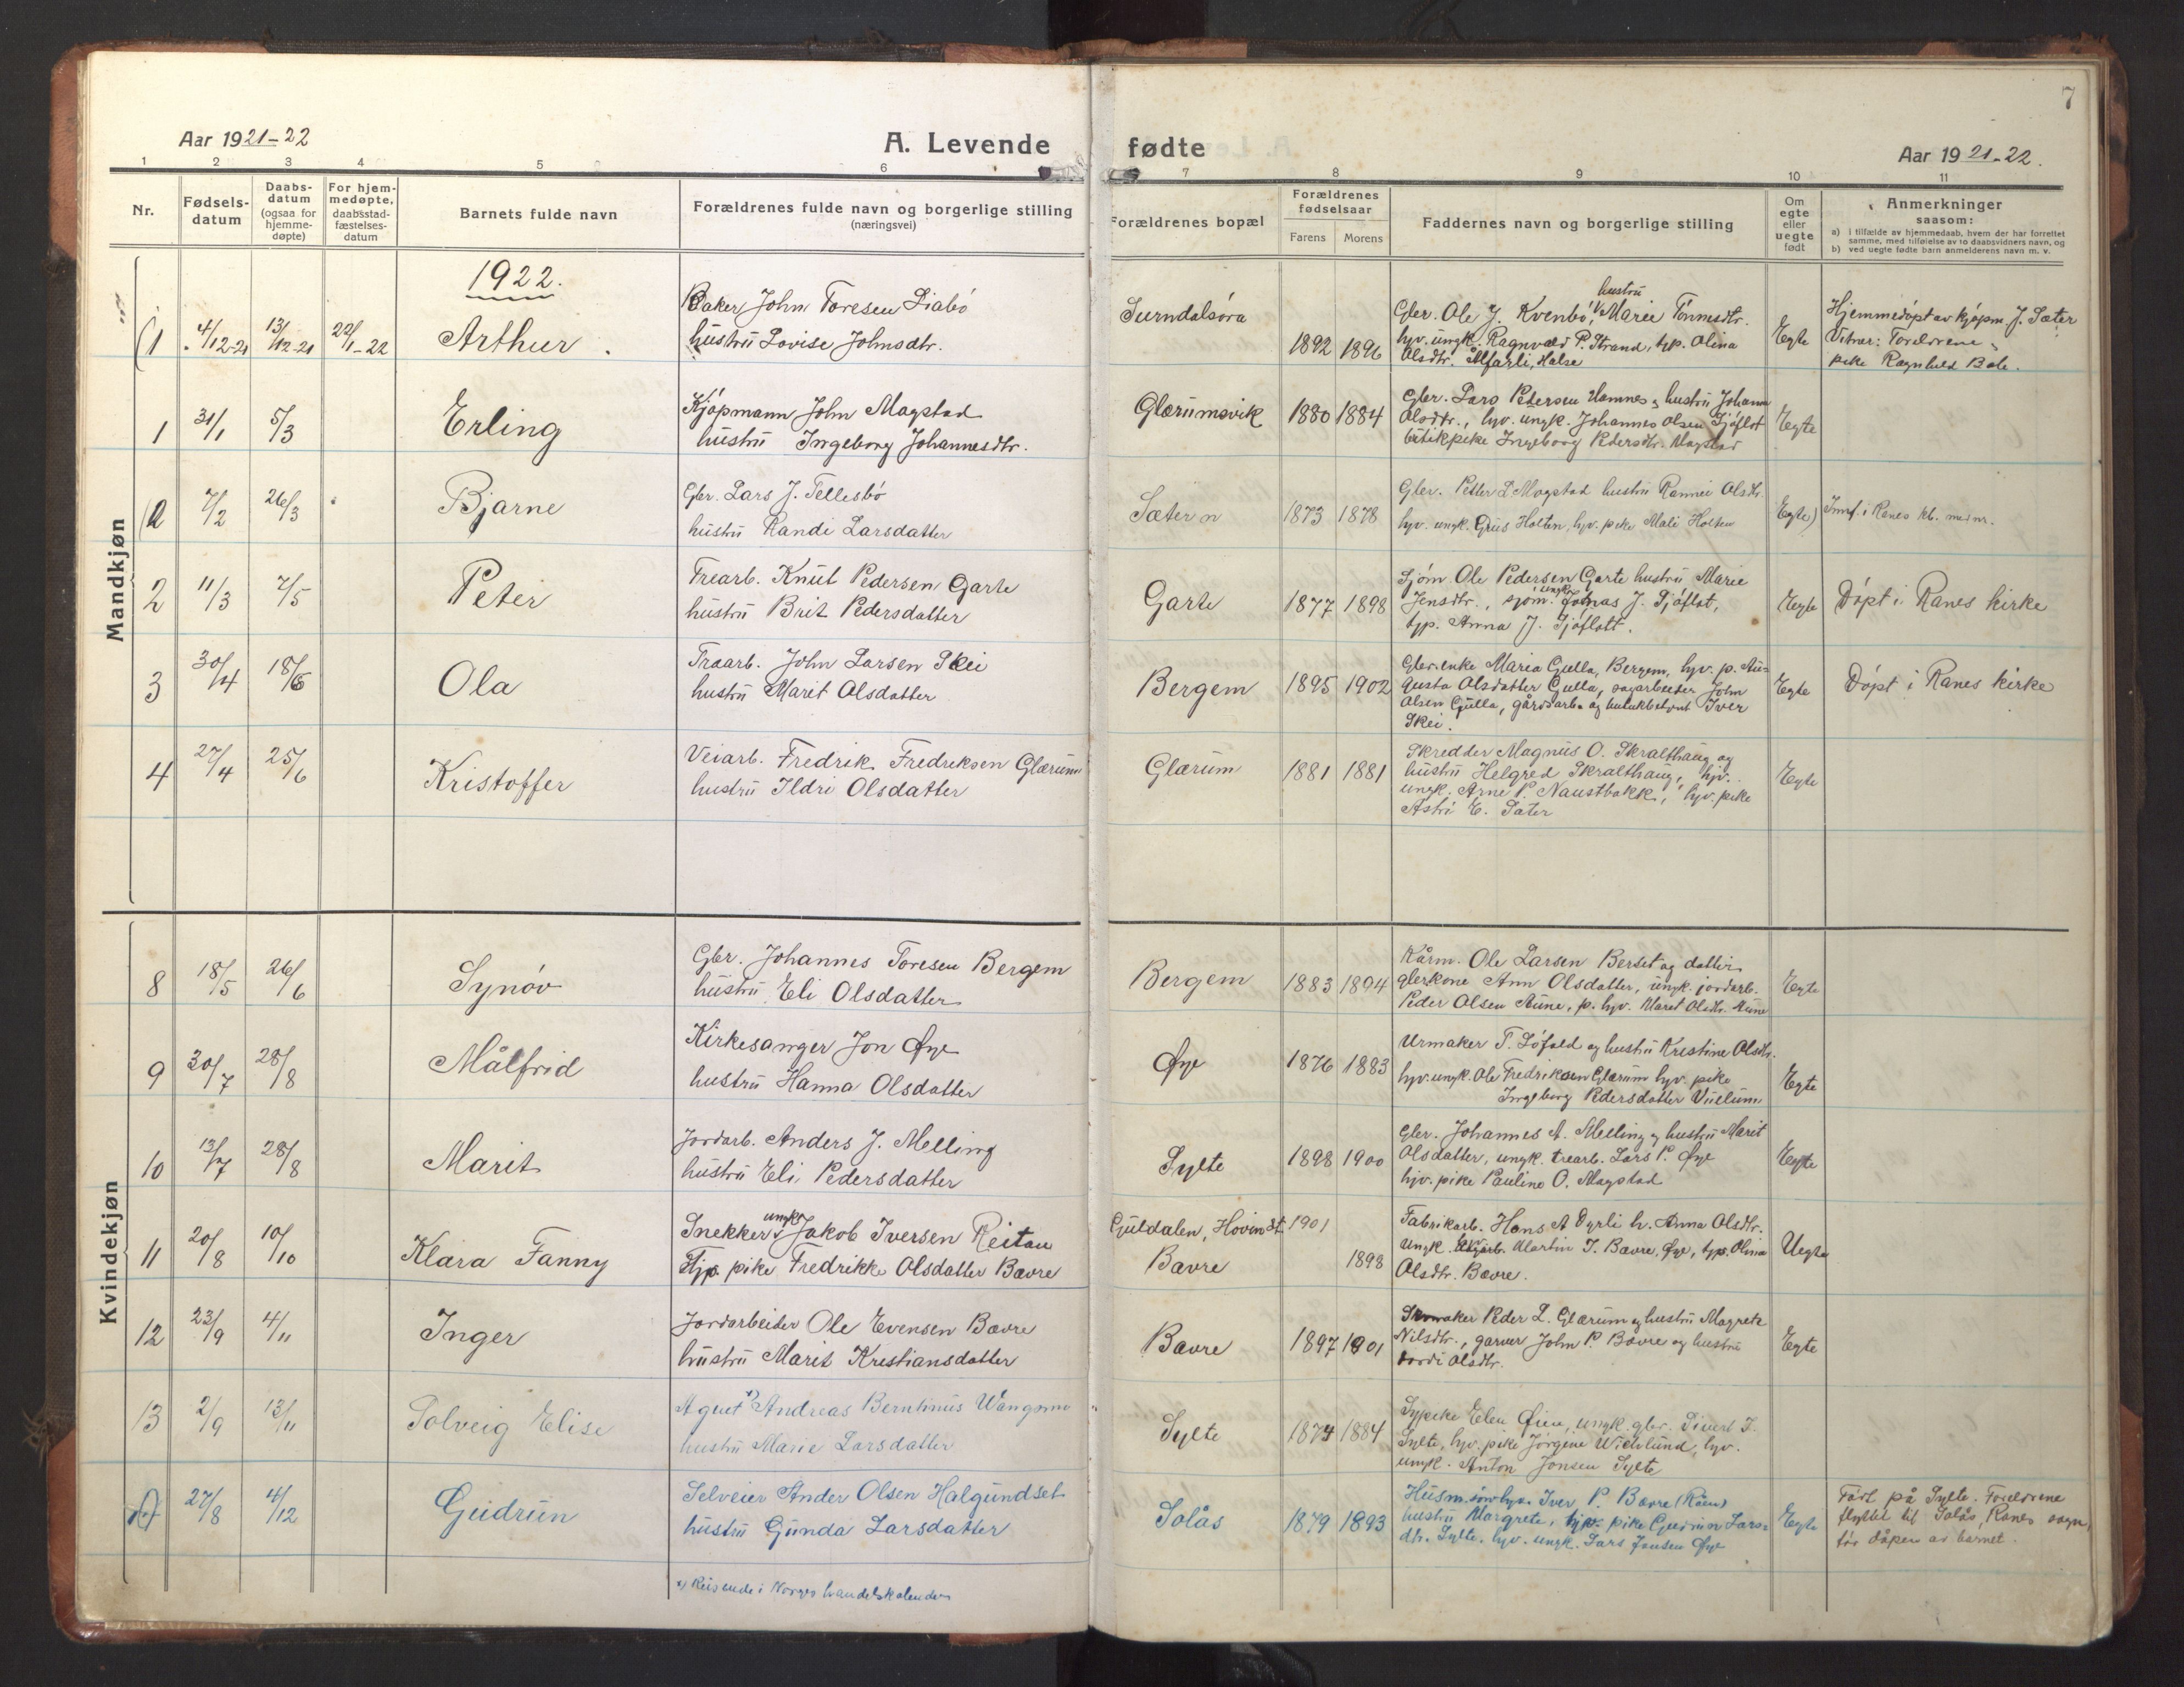 7
Aar 1921-22
A. Levende
fødte
Aar 1921-22.
1 2 3 4 5 6 7 8 9 10 11
Nr.
Fødsels-
datum
Daabs-
datum
(ogsaa for
hjemme-
døpte)
For hjem-
medøpte,
daabsstad-
fæstelses-
datum
Barnets fulde navn
Forældrenes fulde navn og borgerlige stilling
(næringsvei)
Forældrenes bopæl
Forældrenes
fødselsaar
Farens
Morens
Faddernes navn og borgerlige stilling
Om
egte
eller
uegte
født
Anmerkninger
saasom:
a) i tilfælde av hjemmedaab, hvem der har forrettet
samme, med tilføielse av to daabsvidners navn, og
b) ved uegte fødte barn anmelderens navn m. v.
Mandkjøn
1922.
(1 4/12-21 13/12-21 22/1-22 Arthur.
Baker John Toresen Liabö
hustru Lovise Johnsdtr.
Surndalsöra
1892 1896
hustru
Gbr. Ole J. Kvenbö, Marie Tönnesdtr.
hjv. ungk. Ragnvald P. Strand, tjp. Olina
Olsdtr. Halse
Egte
Hjemmedöpt av kjöpm. J. Sæter
Vitner: Foreldrene,
pike Ragnhild Bele.
1 31/1 5/3 Erling
Kjöpmann John Magstad
hustru Ingeborg Johannesdtr.
Glærumsvik
1880 1884
Gbr. Lars Petersen Hamnes, hustru Johanna
Olsdtr., hjv. ungk. Johannes Olsen Sjöflot
butikpike Ingeborg Pedersdtr. Magstad
Egte
(2 7/2 26/3 Bjarne
Gbr. Lars J. Tellesbö
hustru Randi Larsdatter
Sæter n
1873 1878
Gbr. Petter L. Magstad hustru Rannei Olsdtr.
hjv. ungk. Holten, hjv. pike Mali Holten
Egte)
Innf. i Ranes kb. med nr.
2 11/3 7/5 Peter
Trearb. Knut Pedersen Garte
hustru Brit Pedersdatter
Garte
1877 1898
Sjöm. Ole Pedersen Garte hustru Marie
Jensdtr., sjöm. ungk. Johas J. Sjöflot,
tjp. Anna J. Sjöflott.
Egte
Döpt i Ranes kirke
3 30/4 18/6 Ola
Traarb. John Larsen Skei
hustru Marit Olsdatter
Bergem
1895 1902
Gbr. enke Maria Gulla, Bergem, hjv. p. Au-
gusta Olsdatter Gulla, sagarbeider John
Olsen Gulla, gårdsarb. og Iver
Skei.
Egte
Döpt i Ranes kirke
4 27/4 25/6 Kristoffer
Veiarb. Fredrik Fredriksen Glærum
hustru Ildri Olsdatter
Glærum
1881 1881
Skredder Magnus O. Skralthaug og
hustru Helgred Skralthaug, hjv.
ungk. Arne P. Naustbakk, hjv. pike
Astri E. Sæter
Egte
Kvindekjøn
8 18/5 26/6 Synöv
Gbr. Johannes Toresen Bergem
hustru Eli Olsdatter
Bergem
1883 1894
Kårm. Ole Larsen Berset og datter
gbrkone Ann Olsdatter, ungk. jordarb.
Peder Olsen Aune, p. hjv. Maret Olsdtr. Aune
Egte
9 30/7 28/8 Målfrid
Kirkesanger Jon Øye
hustru Hanna Olsdatter
Øye
1876 1883
Urmaker T. Löfald og hustru Kristine Olsdtr.
hjv. ungk. Ole Fredriksen Glærum hjv. pike
Ingeborg Pedersdatter
Egte
10 13/7 28/8 Marit
Jordarb. Anders J. Melling
hustru Eli Pedersdatter
Sylte
1898 1900
Gbr. Johannes A. Melling og hustru Marit
Olsdatter, ungk. trearb. Lars P. Øye
hjv. pike Pauline O. Magstad
Egte
11 20/8 10/10 Klara Fanny
Snekker ungk. Jakob Iversen Reitan
Tjp. pike Fredrikke Olsdatter Bævre
Guldalen, Hovin st.
Bævre
1901
1898
Fabrikarb. Hans A Dyrli h. Anna Olsdtr.
Ungk. Martin J. Bævre, Øye, tjp. Olina
Olsdtr. Bævre.
Uegte
12 23/9 4/11 Inger
Jordarbeider Ole Evensen Bævre
hustru Marit Kristiansdatter
Bævre
1897 1901
Skomaker Peder L. Glærum og hustru Magrete
Nilsdtr., garver John P. Bævre og hustru
Olsdtr.
Egte
13 2/9 13/11 Solveig Elise
Agent x) Andreas Berntinus Wangsmo
hustru Marie Larsdatter
Sylte
1874 1884
Sypike Elen Øien, ungk. gbr. Sivert J.
Sylte, hjv. pike Jörgine Wicklund, hjv.
ungk. Anton Jonsen Sylte
27/8 4/12 Gudrun
Selveier Ander Olsen Halgundset
hustru Gunda Larsdatter
Solås
1879 1893
Husm. sönhjv. Iver P. Bævre (Röen)
hustru Margrete, tjv. pike Gudrun Lars-
dtr. Sylte, hjv. ungk. Lars Jonsen Øye
Egte
Födt på Sylte. Foreldrene
flyttet til Solås, Ranes sogn,
för dåpen av barnet.
x) Reisende i Norges handelskalender